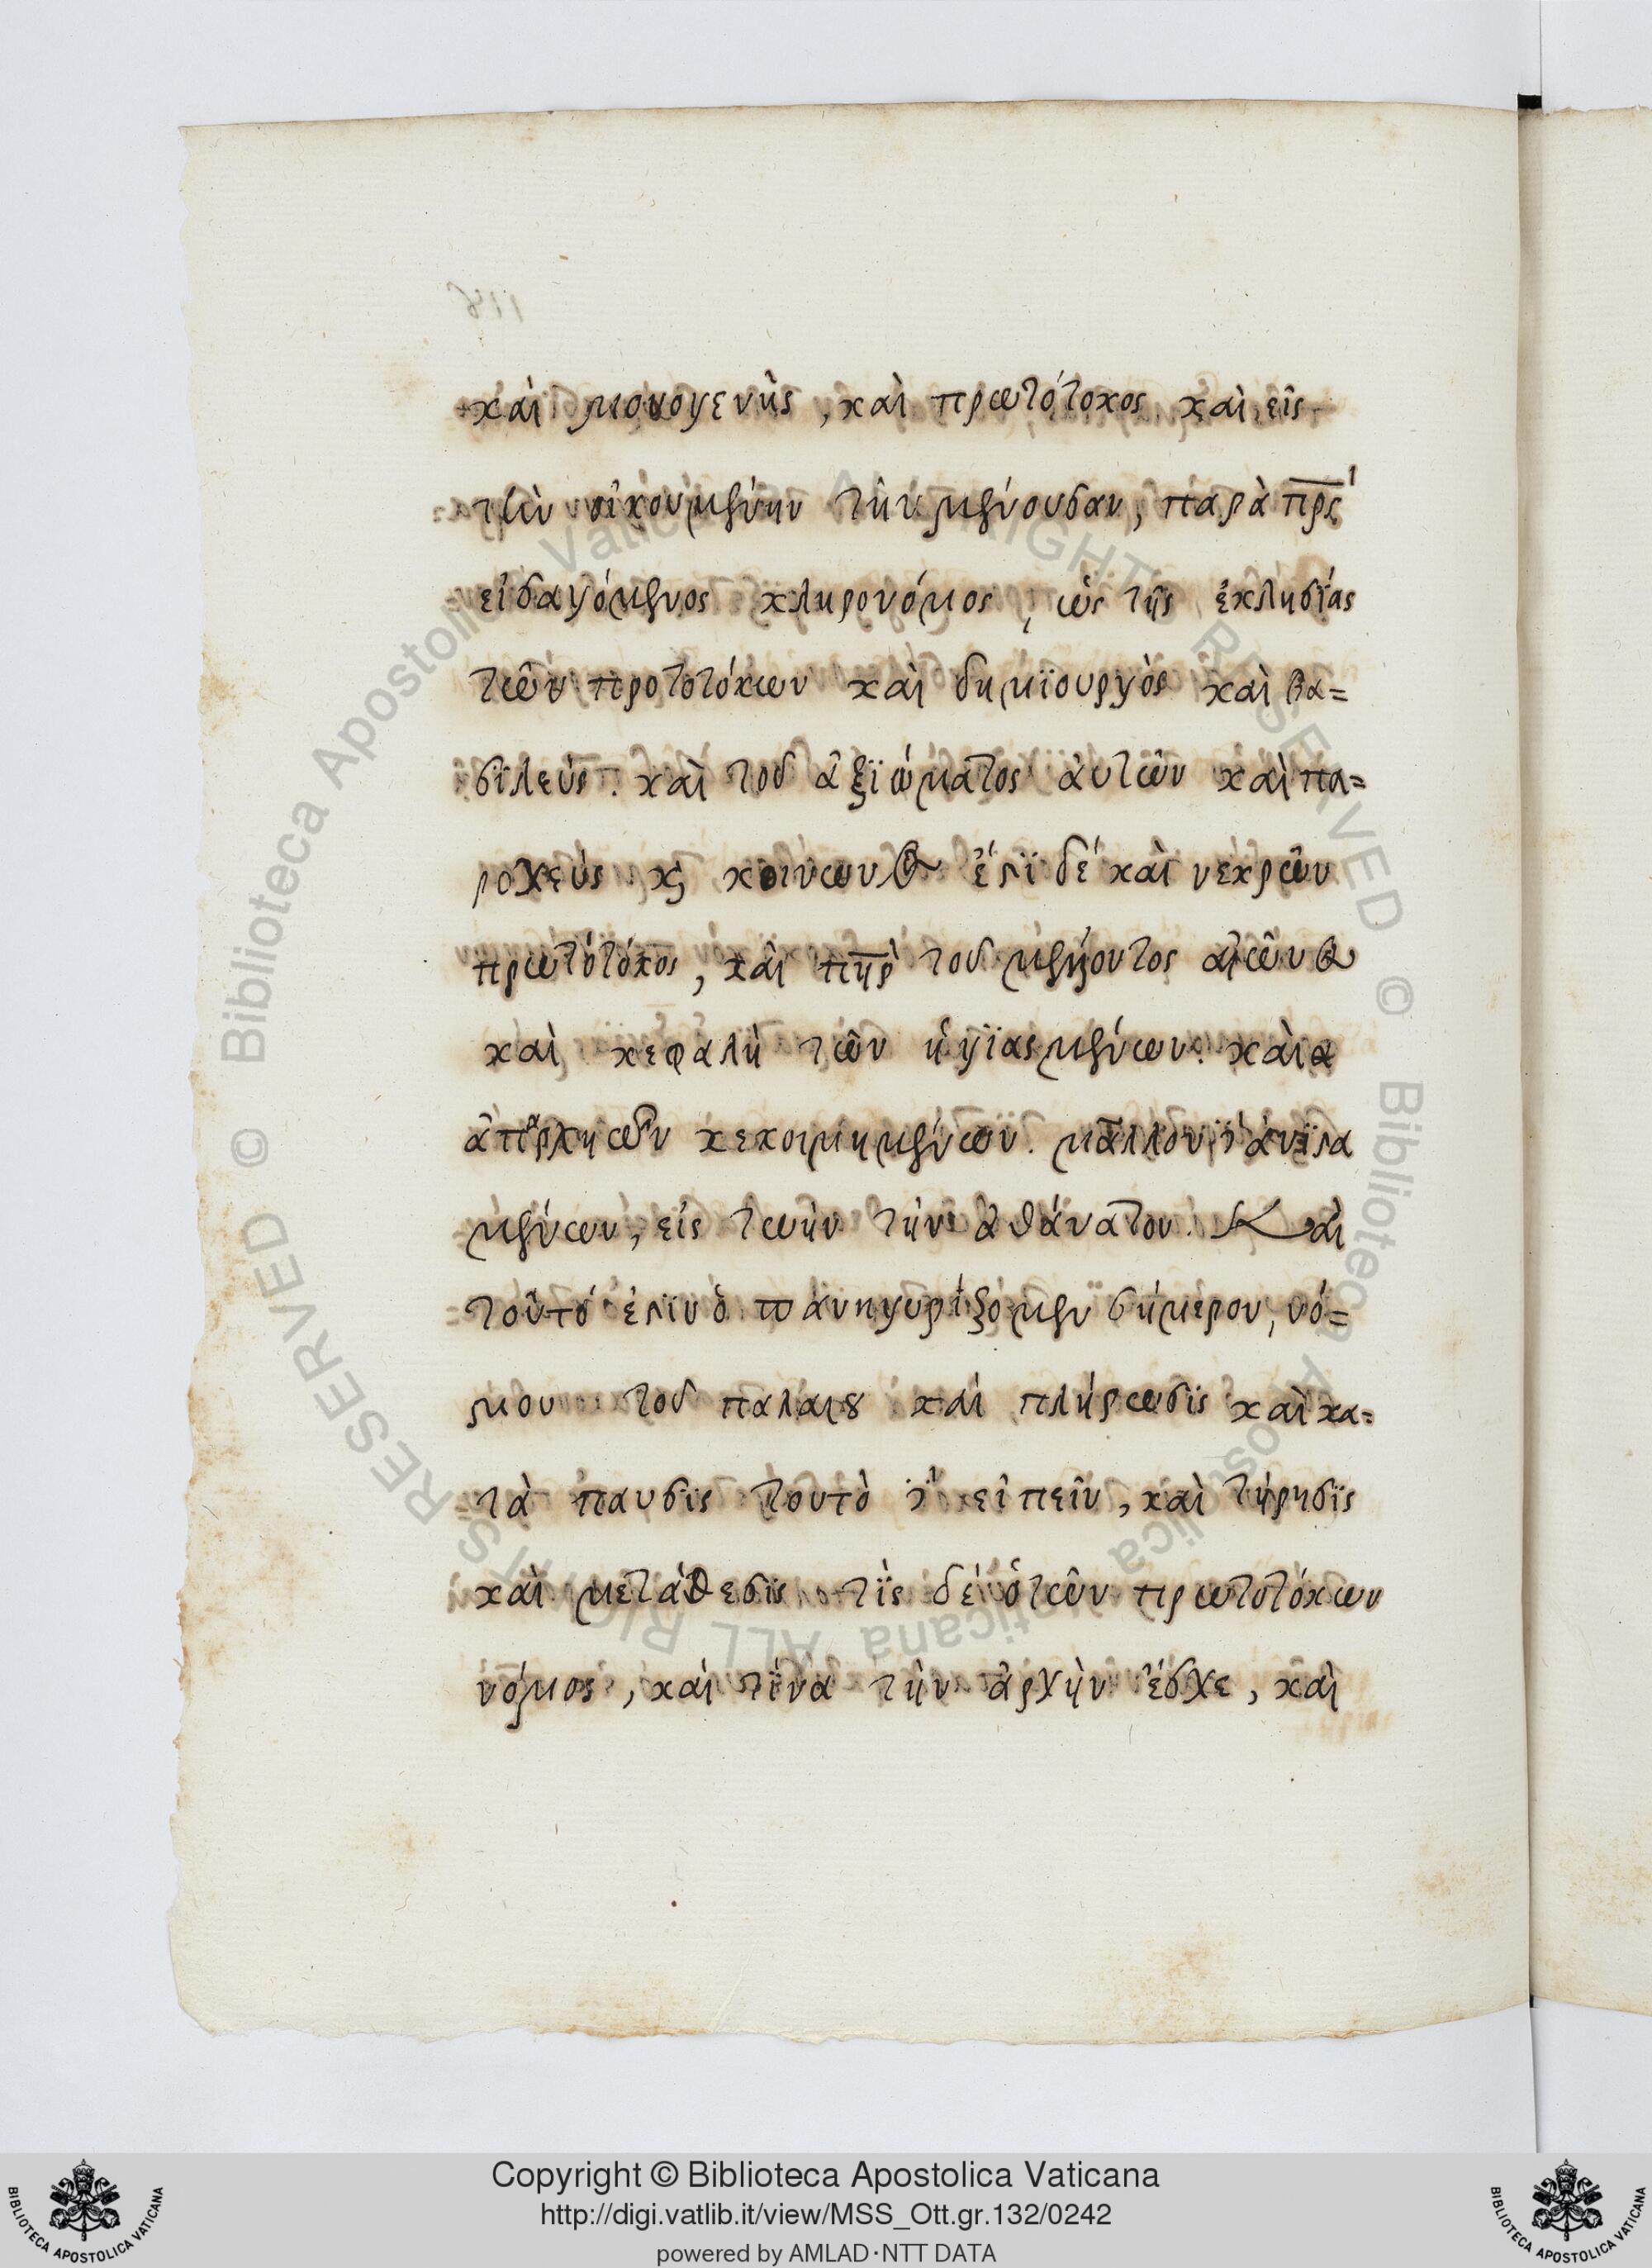 καὶ μονογενὴς, καὶ πρωτότοκος καὶ εἰς
τὴν οἰκουμένην τὴν μένουσαν, παρὰ πρς
εἰσαγόμενος κληρονόμος, ὡς τῆς ἐκλησίας
τῶν προτοτόκων καὶ δημϊουργὸς καὶ βα=
σϊλεύς. καὶ τοῦ ἀξϊώματος ἀυτῶν καὶ πα=
ροχεύς κ κοινων ἔστϊ δέ καὶ νεκρῶν
πρωτότόκος, καὶ πηρ τοῦ αἰῶν
καὶ κεφαλὴ τῶν ἡγϊασμένων. καὶ
ἀπαρχη ῶν κεκοιμημένων. μᾶλλον ἀνϊστα
μένων, εἰς τωὴν τὴν ἀθάνατον. Καὶ
τοῦτό ἐστϊν ὁ πανηγυρίζομεν σήμερον, νό=
μου τοῦ παλαιου καὶ πλήρωσϊς καὶ κα=
τὰ παυσϊς τουτὸ εἰπεῖν, καὶ τήρησϊς
καὶ μετάθεσϊς τϊς δέ ὁ τῶν πρωτοτόκων
νόμος, καὶ τϊνα τὴν ἀρχὴν ἔσχε, καὶ
Copyright © Biblioteca Apostolica Vaticana
http://digi.vatlib.it/view/MSS_Ott.gr.132/0242
powered by AMLAD·NTT DATA
BIBLIOTECA APOSTOLICA VATICANA
BIBLIOTECA APOSTOLICA VATICANA
© Biblioteca Apostolica Vaticana ALL RIGHTS RESERVED © Biblioteca Apostolica Vaticana ALL RIGHTS RESERVED